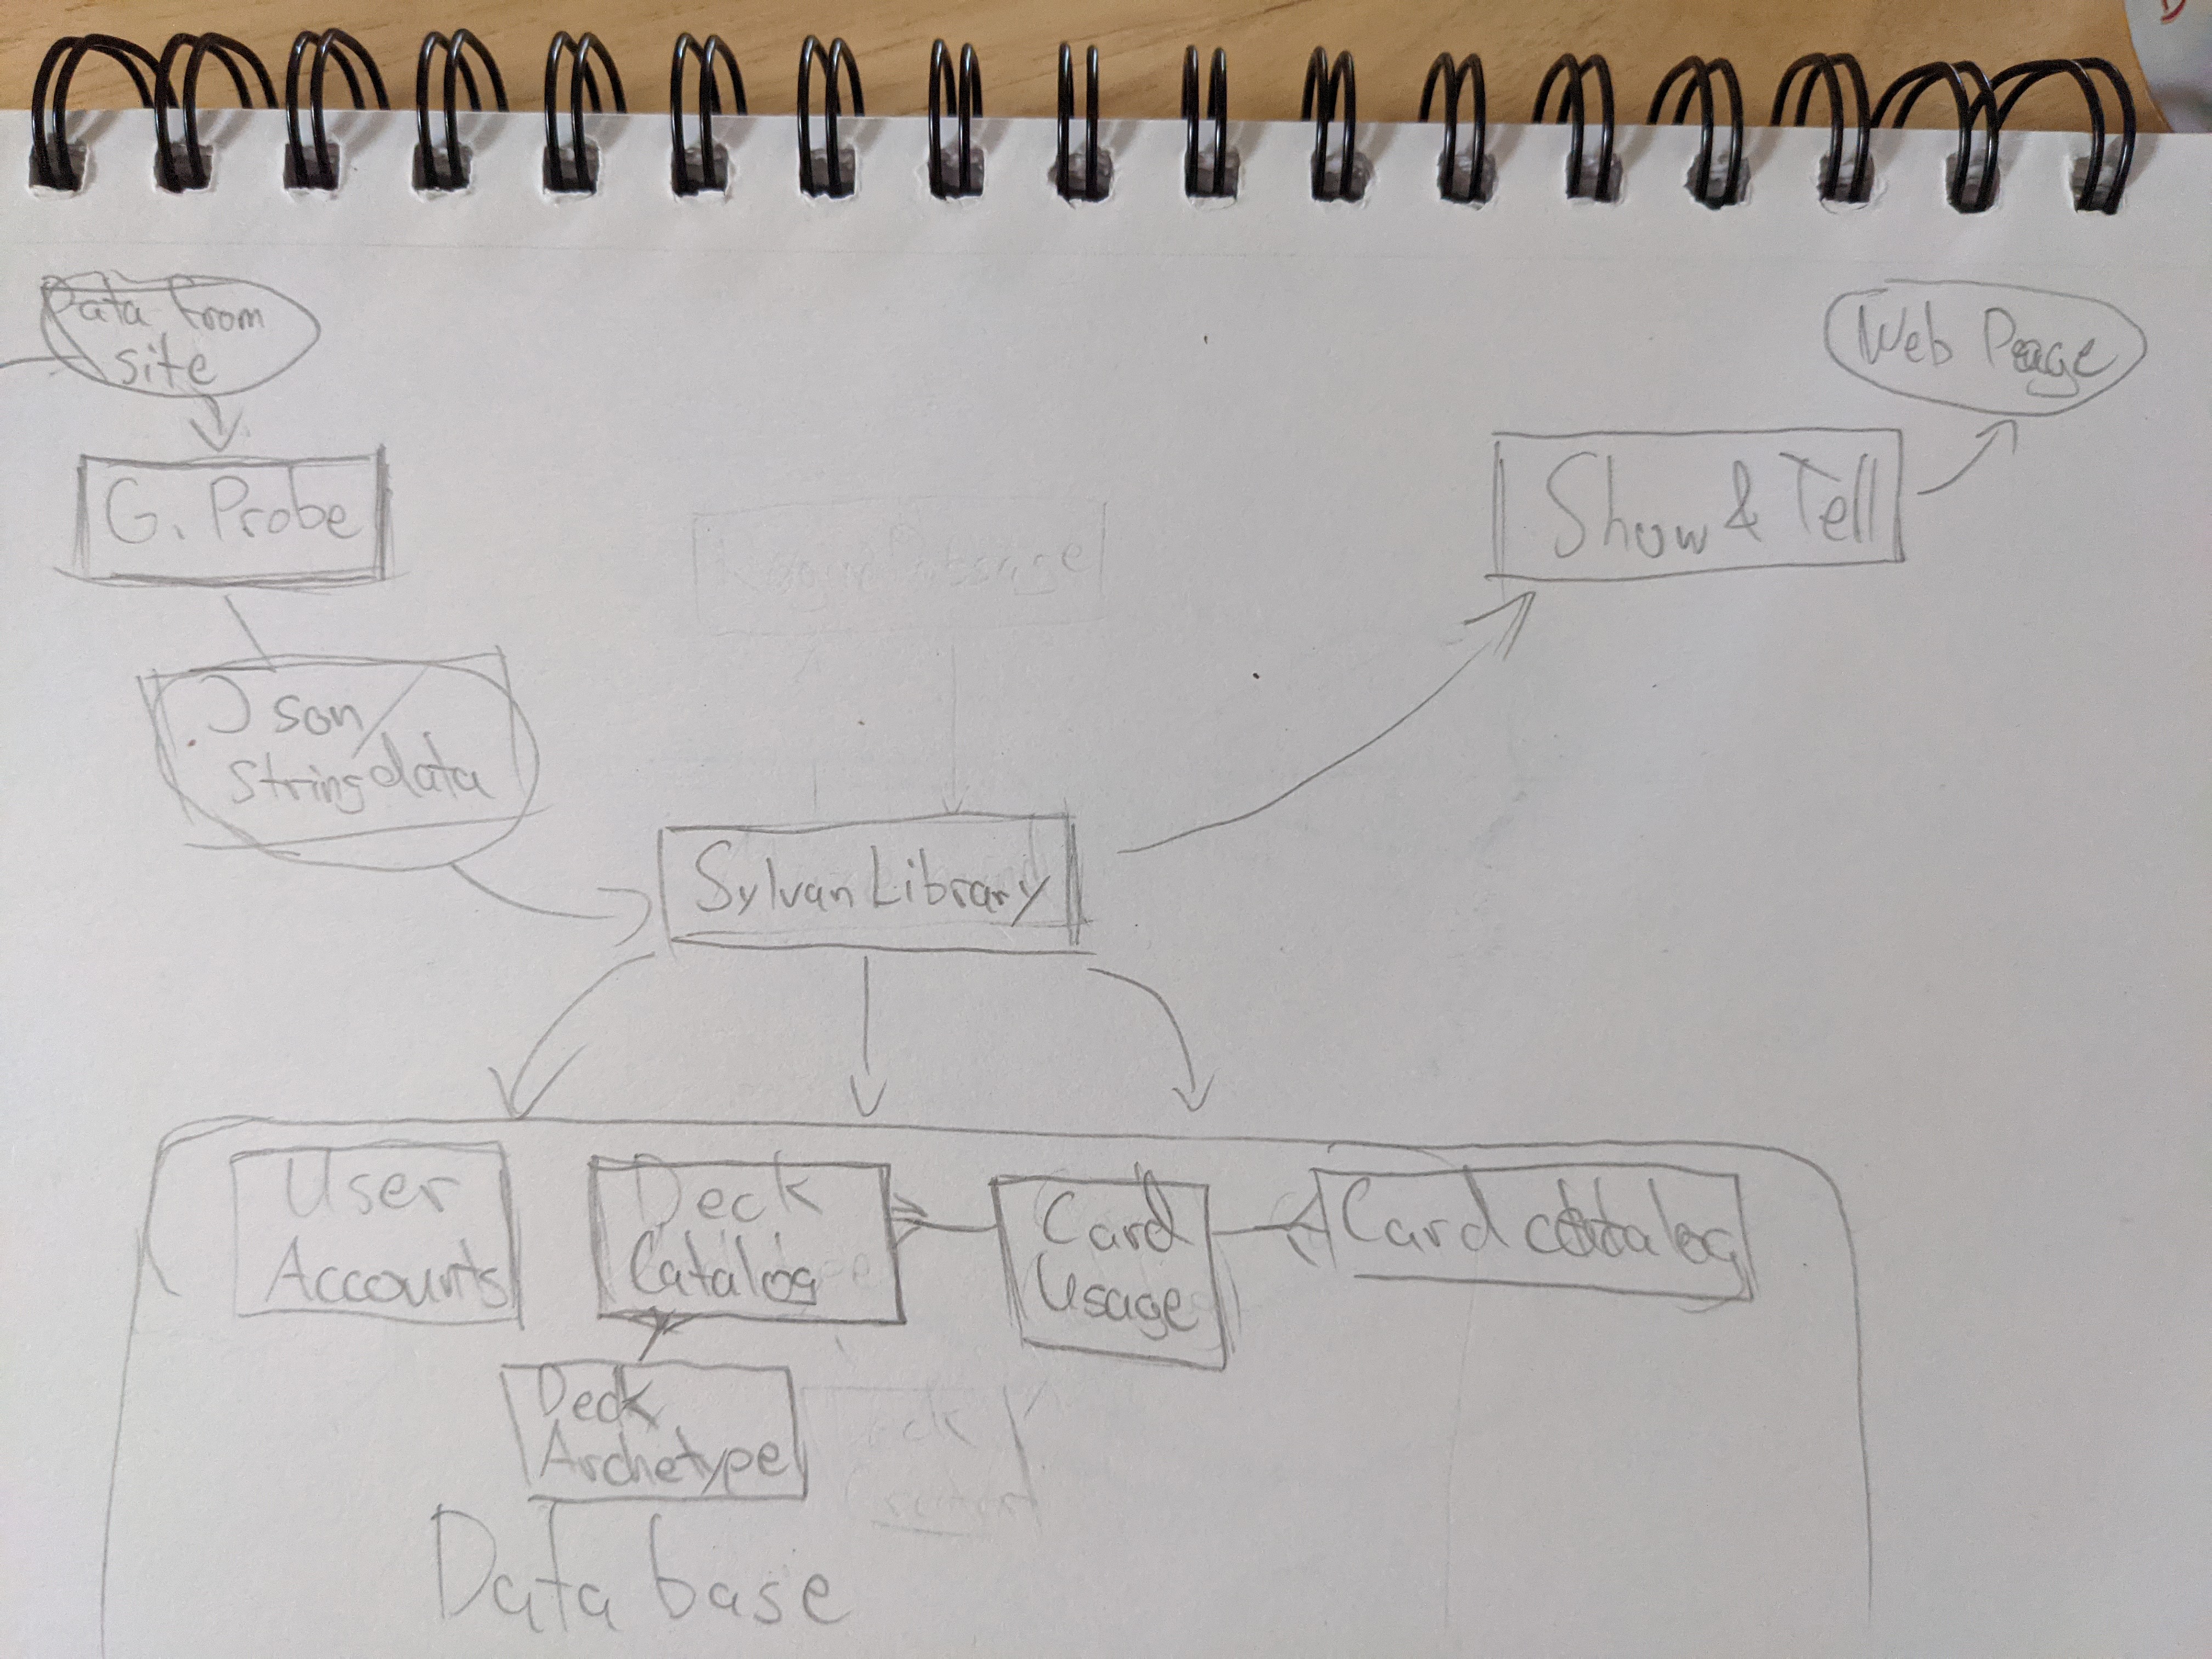 Data from
site
Web Page
G. Probe
Show & Tell
Json/
String data
Sylvan Library
User
Accounts
Deck
Catalog
Card
Usage
Card catalog
Deck
Archetype
Data base